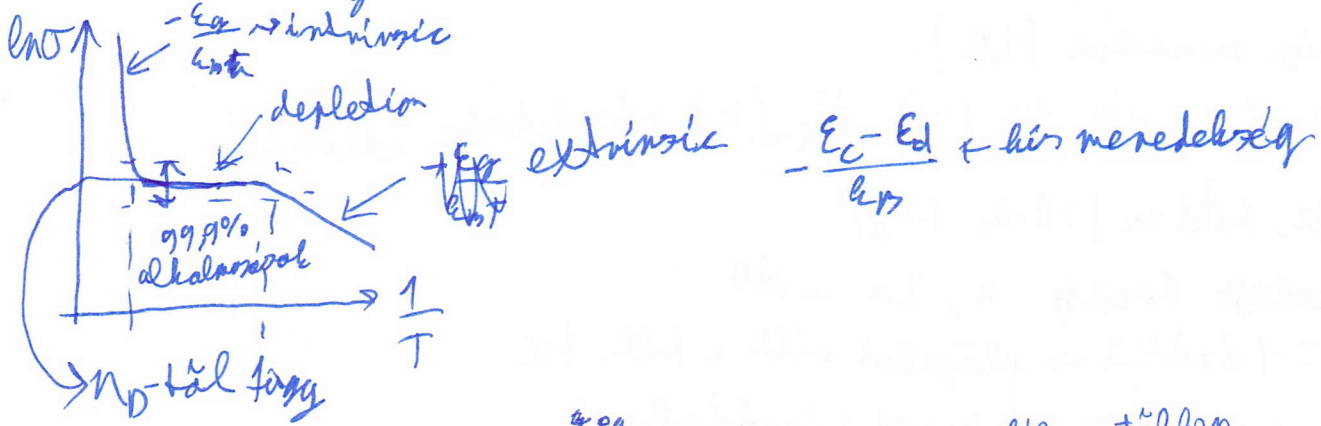 lnσ
-εg/k_B → intrinsic
depletion
extrinsic -(εc - εd)/k_B ← kis meredekség
99,9%
alkalmazások
1/T
n_D-től függ